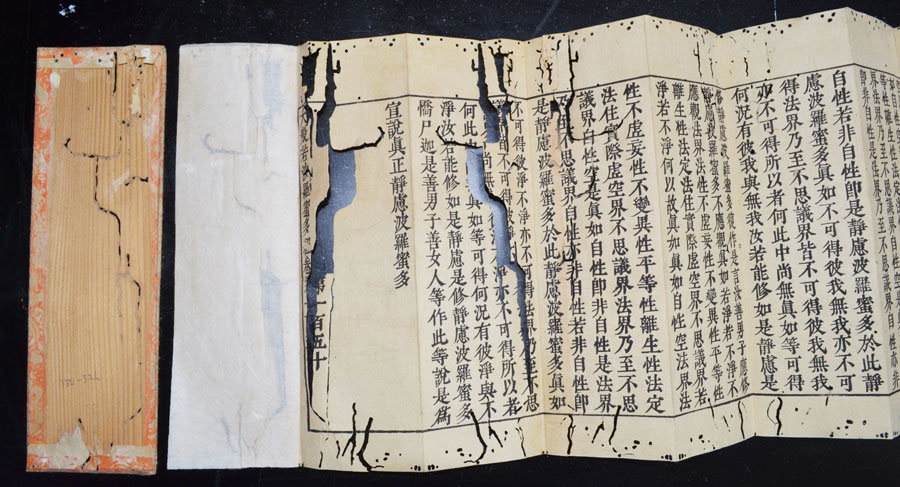 自性若非自性即是靜慮波羅蜜多於此靜
慮波羅蜜多真如不可得彼我無我亦不可
得法界乃至不思議界皆不可得彼我無我
亦不可得所以者何此中尚無真如等可得
何況有彼我與無我汝若能修如是靜慮是
修靜慮波羅蜜多復作是言汝善男子應修
靜慮波羅蜜多不應觀真如若淨若不淨不
應觀法界法性不虛妄性不變異性平等性
離生性法定法住實際虛空界不思議界若
淨若不淨何以故真如真如自性空法界法
性不虛妄性不變異性平等性離生性法定
法住實際虛空界不思議界法界乃至不思
議界自性空是真如自性即非自性是法界
乃至不思議界自性亦非自性若非自性即
是靜慮波羅蜜多於此靜慮波羅蜜多真如
不可得彼淨不淨亦不可得法界乃至不思
議皆不可得彼淨不淨亦不可得所以者
何此尚無真如等可得何況有彼淨與不
淨汝能修如是靜慮是修靜慮波羅蜜多
憍尸迦是善男子善女人等作此等說是為
宣說真正靜慮波羅蜜多
第一百五十